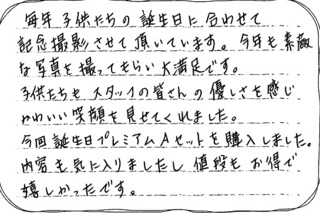 毎年 子供たちの 誕生日に 合わせて
記念撮影させて 頂いています。今年も 素敵
な写真を 撮ってもらい 大満足です。
子供たちも スタッフの皆さんの 優しさを感じ
かわいい 笑顔を見せてくれました。
今回 誕生日プレミアムAセットを購入しました。
内容も気に入りましたし 値段も お得で
嬉しかったです。